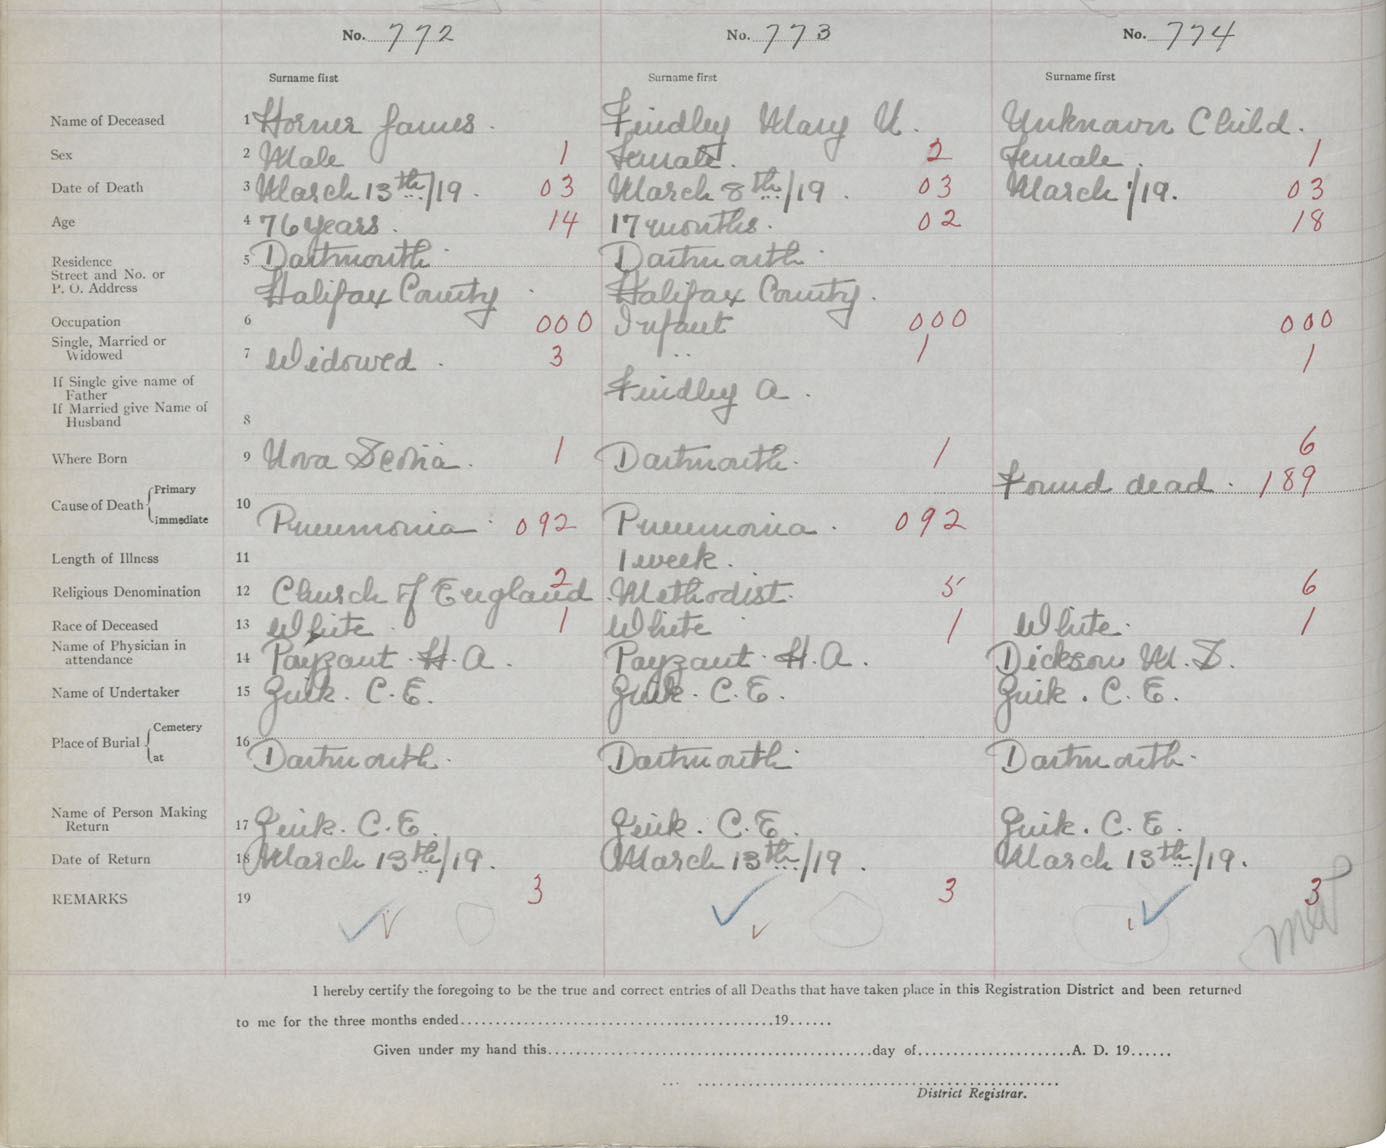 No. 772 No. 773 No. 774
Surname first Surname first Surname first
Name of Deceased 1 Horner James. Findley Mary U. Unknown Child.
Sex 2 Male 1 Female. 2 Female. 1
Date of Death 3 March 13th/19. 03 March 8th/19. 03 March 1/19. 03
Age 4 76 years. 14 17 months. 02 18
Residence 5 Dartmouth. Dartmouth.
Street and No. or
P. O. Address Halifax County. Halifax County.
Occupation 6 000 Infant 000 000
Single, Married or
Widowed 7 Widowed. 3 " 1 1
If Single give name of
Father Findley A.
If Married give Name of
Husband 8
6
Where Born 9 Nova Scotia. 1 Dartmouth. 1
Found dead. 189
Cause of Death Primary
Immediate 10 Pneumonia. 092 Pneumonia. 092
Length of Illness 11 1 week.
Religious Denomination 12 Church of England 2 Methodist. 5 6
Race of Deceased 13 White. 1 White 1 White. 1
Name of Physician in
attendance 14 Payzant. H. A. Payzant. H. A. Dickson M. S.
Name of Undertaker 15 C. E. C. E. C. E.
Place of Burial Cemetery
at 16 Dartmouth. Dartmouth. Dartmouth.
Name of Person Making
Return 17 C. E. C. E. C. E.
Date of Return 18 March 13th/19. March 13th/19. March 13th/19.
REMARKS 19 3 3 3
I hereby certify the foregoing to be the true and correct entries of all Deaths that have taken place in this Registration District and been returned
to me for the three months ended 19
Given under my hand this day of A. D. 19
District Registrar.